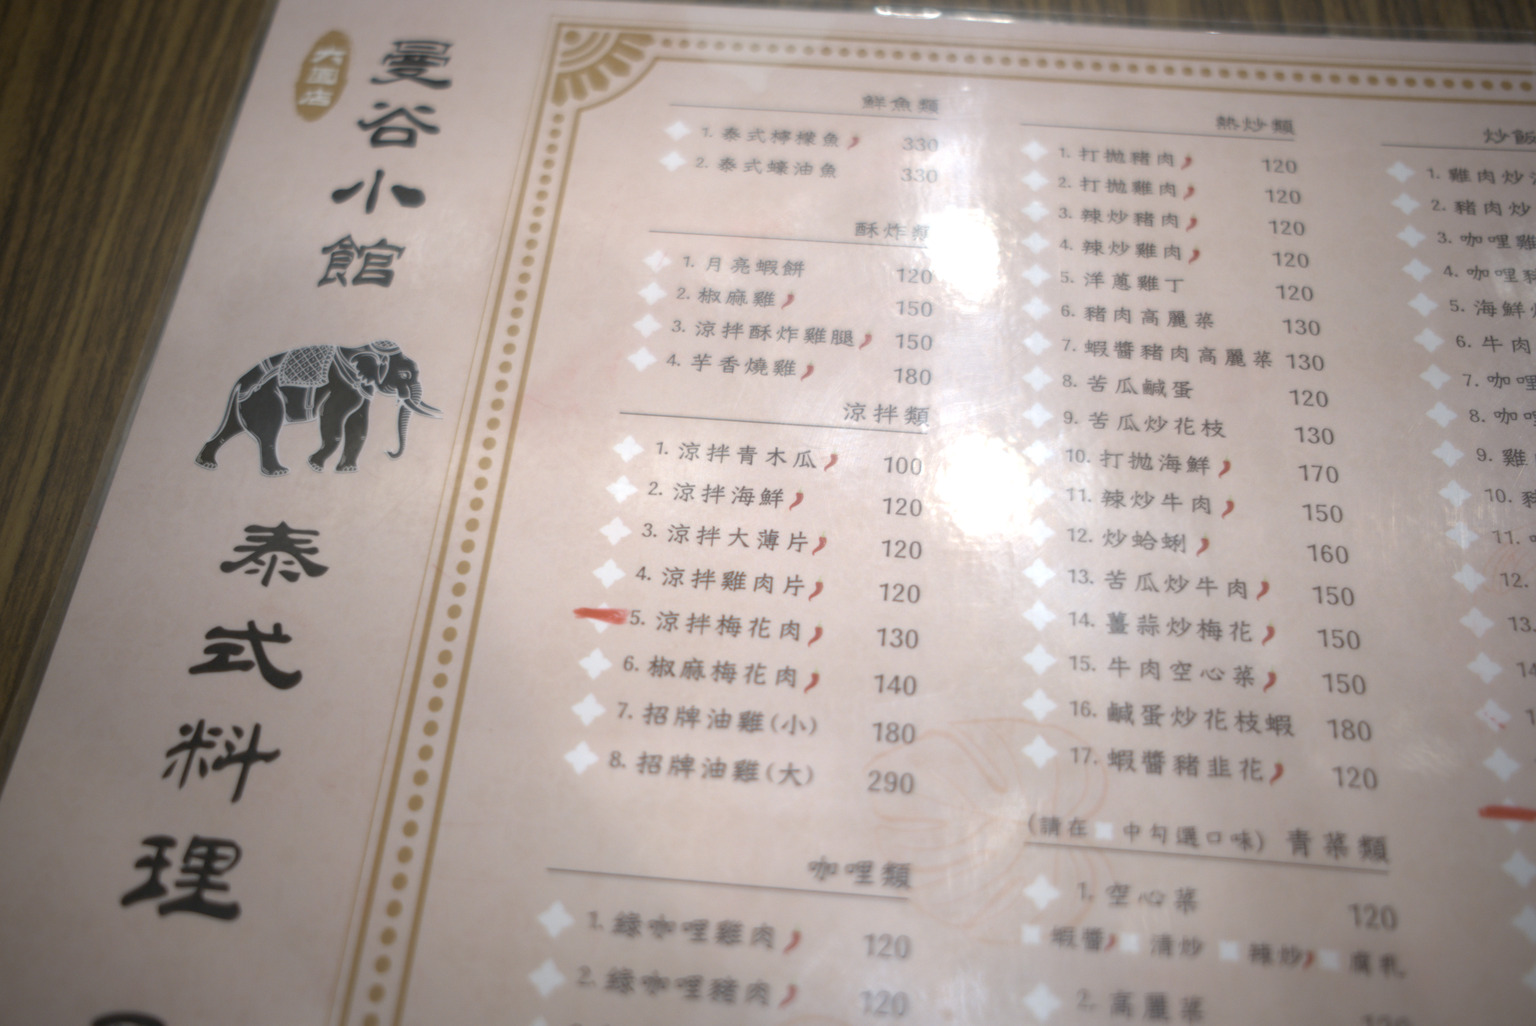 大直店
曼谷小館
泰式料理
鮮魚類
1. 泰式檸檬魚 330
2. 泰式蠔油魚 330
酥炸類
1. 月亮蝦餅 120
2. 椒麻雞 150
3. 涼拌酥炸雞腿 150
4. 芋香燒雞 180
涼拌類
1. 涼拌青木瓜 100
2. 涼拌海鮮 120
3. 涼拌大薄片 120
4. 涼拌雞肉片 120
5. 涼拌梅花肉 130
6. 椒麻梅花肉 140
7. 招牌油雞(小) 180
8. 招牌油雞(大) 290
咖哩類
1. 綠咖哩雞肉 120
2. 綠咖哩豬肉 120
熱炒類
1. 打拋豬肉 120
2. 打拋雞肉 120
3. 辣炒豬肉 120
4. 辣炒雞肉 120
5. 洋蔥雞丁 120
6. 豬肉高麗菜 130
7. 蝦醬豬肉高麗菜 130
8. 苦瓜鹹蛋 120
9. 苦瓜炒花枝 130
10. 打拋海鮮 170
11. 辣炒牛肉 150
12. 炒蛤蜊 160
13. 苦瓜炒牛肉 150
14. 薑蒜炒梅花 150
15. 牛肉空心菜 150
16. 鹹蛋炒花枝蝦 180
17. 蝦醬豬韭花 120
(請在 中勾選口味) 青菜類
1. 空心菜 120
蝦醬 清炒 辣炒 腐乳
2. 高麗菜
炒飯
1. 雞肉炒
2. 豬肉炒
3. 咖哩雞
4. 咖哩豬
5. 海鮮炒
6. 牛肉
7. 咖哩
8. 咖哩
9. 雞
10. 豬
11.
12.
13.
14